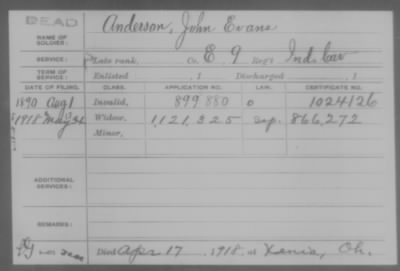 DEAD
NAME OF SOLDIER: Anderson, John Evans
SERVICE: Late rank, Co. E. 9 Reg't Ind. Cav
TERM OF SERVICE: Enlisted , 1 Discharged , 1
DATE OF FILING. CLASS. APPLICATION NO. LAW. CERTIFICATE NO.
1890 Aug 1 Invalid, 899 880 0 1024126
1918 May 24 Widow, 1,121,325 866,272
Minor,
ADDITIONAL SERVICES:
REMARKS:
Died Apr 17, 1918, at Xenia, Oh.